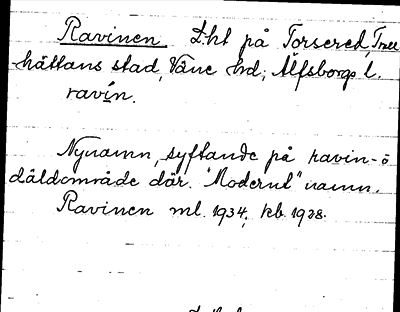 Ravinen L:ht på Torsered, Troll
hättans stad, Väne hd, Älfsborgs l.
ravín.
Nynamn, syftande på ravin- o
däldområde där. "Modernt" namn.
Ravinen ml. 1934, kb. 1938.